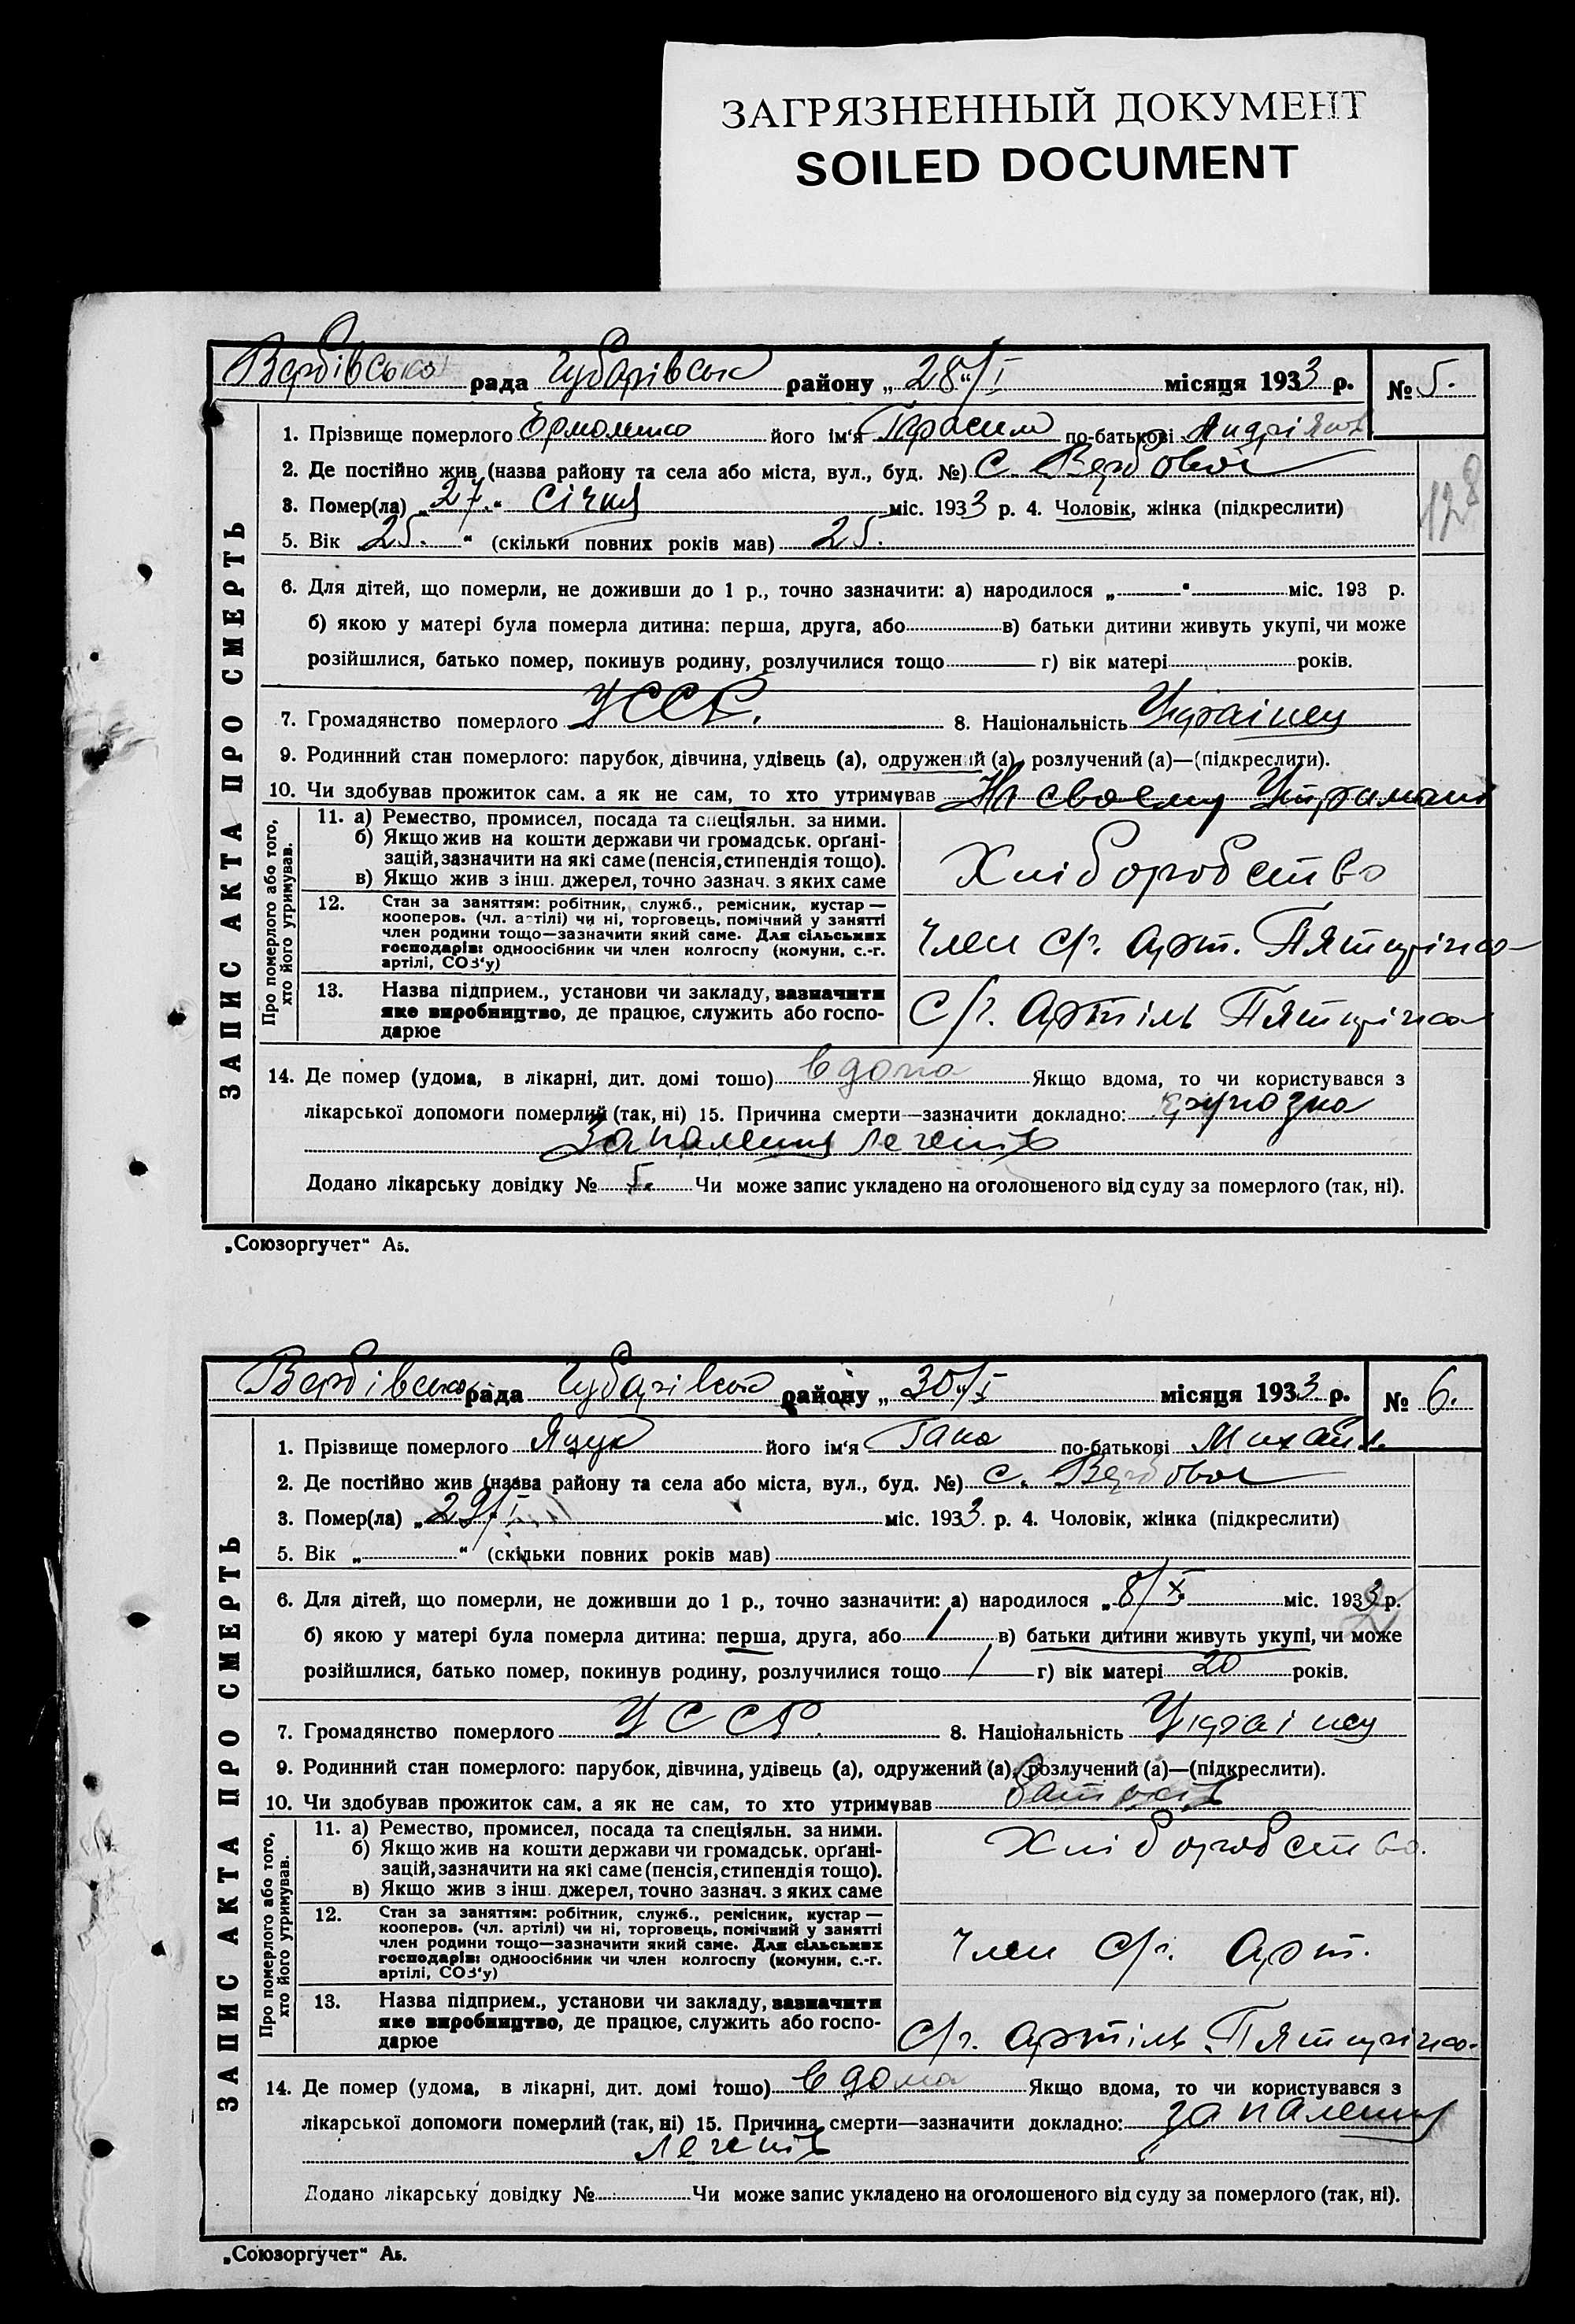 ЗАГРЯЗНЕННЫЙ ДОКУМЕНТ
SOILED DOCUMENT
Вербівська рада Чубарівськ району „28“/I місяця 1933 р. № 5.
ЗАПИС АКТА ПРО СМЕРТЬ
1. Прізвище померлого Єрмоленко його ім'я Герасим по-батькові Андріян
2. Де постійно жив (назва району та села або міста, вул., буд. №) С. Вербовоє
3. Помер(ла) „27.“ січня міс. 1933 р. 4. Чоловік, жінка (підкреслити)
5. Вік „25.“ (скільки повних років мав) 25.
128
6. Для дітей, що померли, не доживши до 1 р., точно зазначити: а) народилося „ “ міс. 193 р.
б) якою у матері була померла дитина: перша, друга, або в) батьки дитини живуть укупі, чи може
розійшлися, батько помер, покинув родину, розлучилися тощо г) вік матері років.
7. Громадянство померлого УССР. 8. Національність Українец
9. Родинний стан померлого: парубок, дівчина, удівець (а), одружений (а), розлучений (а)—(підкреслити).
10. Чи здобував прожиток сам, а як не сам, то хто утримував На своему Утримані
Про померлого або того, хто його утримував.
11. а) Ремество, промисел, посада та спеціяльн. за ними.
б) Якщо жив на кошти держави чи громадськ. організацій, зазначити на які саме (пенсія, стипендія тощо).
в) Якщо жив з інш. джерел, точно зазнач. з яких саме
Хліборобство
12. Стан за заняттям: робітник, служб., ремісник, кустар—
кооперов. (чл. артілі) чи ні, торговець, помічний у занятті
член родини тощо—зазначити який саме. Для сільських
господарів: одноосібник чи член колгоспу (комуни, с.-г.
артілі, СОЗ'у)
Член с/г. арт. Пятирічка
13. Назва підприєм., установи чи закладу, зазначити
яке виробництво, де працює, служить або госпо-
дарює
С/г. артіль Пятирічка
14. Де помер (удома, в лікарні, дит. домі тощо) вдома Якщо вдома, то чи користувався з
лікарської допомоги померлий (так, ні) 15. Причина смерти—зазначити докладно:
Запаленния легенів
Додано лікарську довідку № 5. Чи може запис укладено на оголошеного від суду за померлого (так, ні).
„Союзоргучет“ А5.
Вербівська рада Чубарівськ району „30“/I місяця 1933 р. № 6.
ЗАПИС АКТА ПРО СМЕРТЬ
1. Прізвище померлого Яцук його ім'я Гана по-батькові Михайл.
2. Де постійно жив (назва району та села або міста, вул., буд. №) С. Вербовоє
3. Помер(ла) „29/I міс. 1933. р. 4. Чоловік, жінка (підкреслити)
5. Вік „ “ (скільки повних років мав)
6. Для дітей, що померли, не доживши до 1 р., точно зазначити: а) народилося „8/X міс. 1932 р.
б) якою у матері була померла дитина: перша, друга, або / в) батьки дитини живуть укупі, чи може
розійшлися, батько помер, покинув родину, розлучилися тощо / г) вік матері 20 років.
7. Громадянство померлого УССР. 8. Національність Українец
9. Родинний стан померлого: парубок, дівчина, удівець (а), одружений (а), розлучений (а)—(підкреслити).
10. Чи здобував прожиток сам, а як не сам, то хто утримував
Про померлого або того, хто його утримував.
11. а) Ремество, промисел, посада та спеціяльн. за ними.
б) Якщо жив на кошти держави чи громадськ. організацій, зазначити на які саме (пенсія, стипендія тощо).
в) Якщо жив з інш. джерел, точно зазнач. з яких саме
Хліборобство.
12. Стан за заняттям: робітник, служб., ремісник, кустар—
кооперов. (чл. артілі) чи ні, торговець, помічний у занятті
член родини тощо—зазначити який саме. Для сільських
господарів: одноосібник чи член колгоспу (комуни, с.-г.
артілі, СОЗ'у)
Член с/г. арт.
13. Назва підприєм., установи чи закладу, зазначити
яке виробництво, де працює, служить або госпо-
дарює
С/г. артіль Пятирічка.
14. Де помер (удома, в лікарні, дит. домі тощо) вдома Якщо вдома, то чи користувався з
лікарської допомоги померлий (так, ні) 15. Причина смерти—зазначити докладно: запаления
легенів
Додано лікарську довідку № Чи може запис укладено на оголошеного від суду за померлого (так, ні).
„Союзоргучет“ А5.